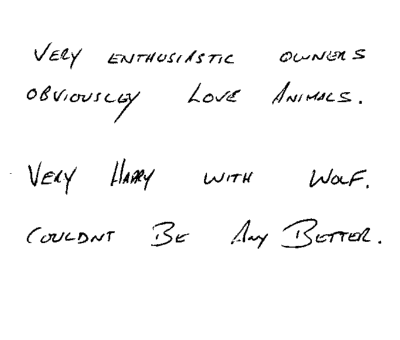 VERY ENTHUSIASTIC OWNERS
OBVIOUSLEY LOVE ANIMALS.
VERY HAPPY WITH WOLF.
COULDNT BE ANY BETTER.